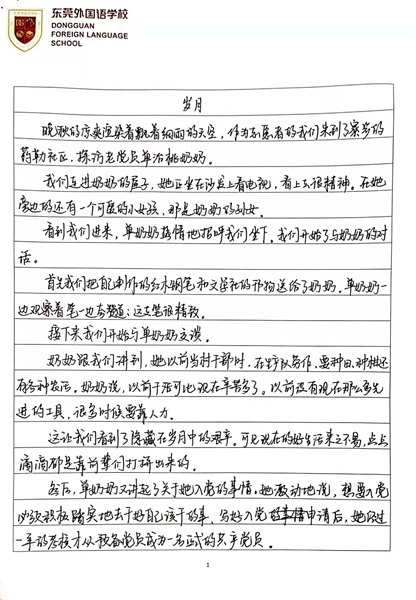 东莞外国语学校
DONGGUAN
FOREIGN LANGUAGE
SCHOOL
岁月
晚秋的凉爽渲染着飘着细雨的天空，作为志愿者的我们来到了寮步的
药勒社区，探访老党员单治桃奶奶。
我们走进奶奶的屋子，她正坐在沙发上看电视，看上去很精神。在她
旁边的还有一个可爱的小女孩，那是奶奶的孙女。
看到我们进来，单奶奶热情地招呼我们坐下。我们开始了与奶奶的对
话。
首先我们把自己制作的红木钢笔和文学社的刊物送给了奶奶。单奶奶一
边观察着笔一边夸赞道：这支笔很精致。
接下来我们开始与单奶奶交谈。
奶奶跟我们讲到，她以前当村干部时，在生产队务作，要种田、种柑还
有各种农活。奶奶说，以前干活可比现在辛苦多了。以前没有现在那么多先
进的工具，很多时候要靠人力。
这让我们看到了隐藏在岁月中的艰辛。可见现在的好生活来之不易，点点
滴滴都是靠前辈们打拼出来的。
然后，单奶奶又讲起了关于她入党的事情。她激动地说，想要入党
必须积极踏实地去干好自己该干的事。写好入党申请后，她经过
一年的考核才从预备党员成为一名正式的共产党员。
1